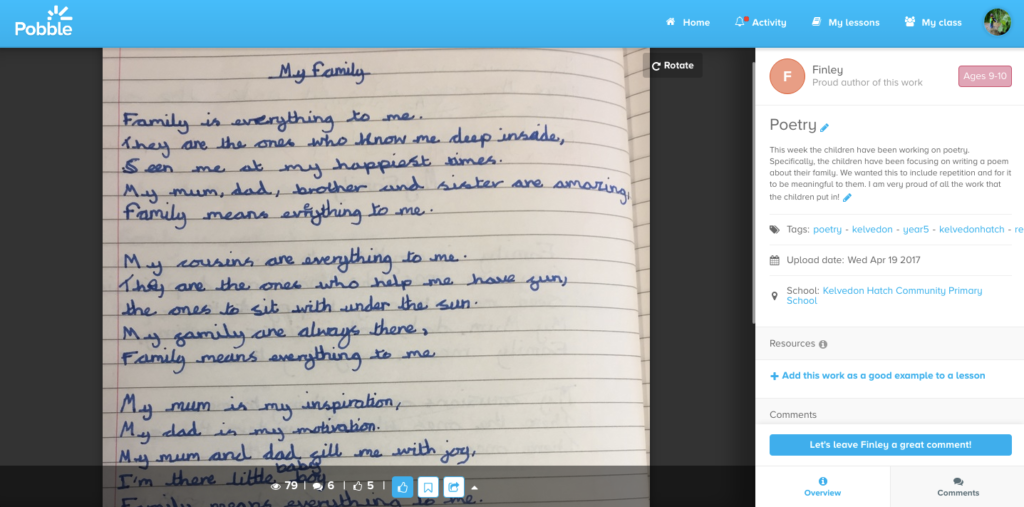 Pobble
Home
Activity
My lessons
My class
My Family
Family is everything to me.
They are the ones who know me deep inside,
Seen me at my happiest times.
My mum, dad, brother and sister are amazing,
Family means everything to me.
My cousins are everything to me.
They are the ones who help me have fun,
the ones to sit with under the sun.
My family are always there,
Family means everything to me
My mum is my inspiration,
My dad is my motivation.
My mum and dad fill me with joy,
I'm there little baby boy
Family means everything to me.
79 | 6 | 5 |
Rotate
F
Finley
Proud author of this work
Ages 9-10
Poetry
This week the children have been working on poetry.
Specifically, the children have been focusing on writing a poem
about their family. We wanted this to include repetition and for it
to be meaningful to them. I am very proud of all the work that
the children put in!
Tags: poetry - kelvedon - year5 - kelvedonhatch - re
Upload date: Wed Apr 19 2017
School: Kelvedon Hatch Community Primary
School
Resources
Add this work as a good example to a lesson
Comments
Let's leave Finley a great comment!
Overview
Comments